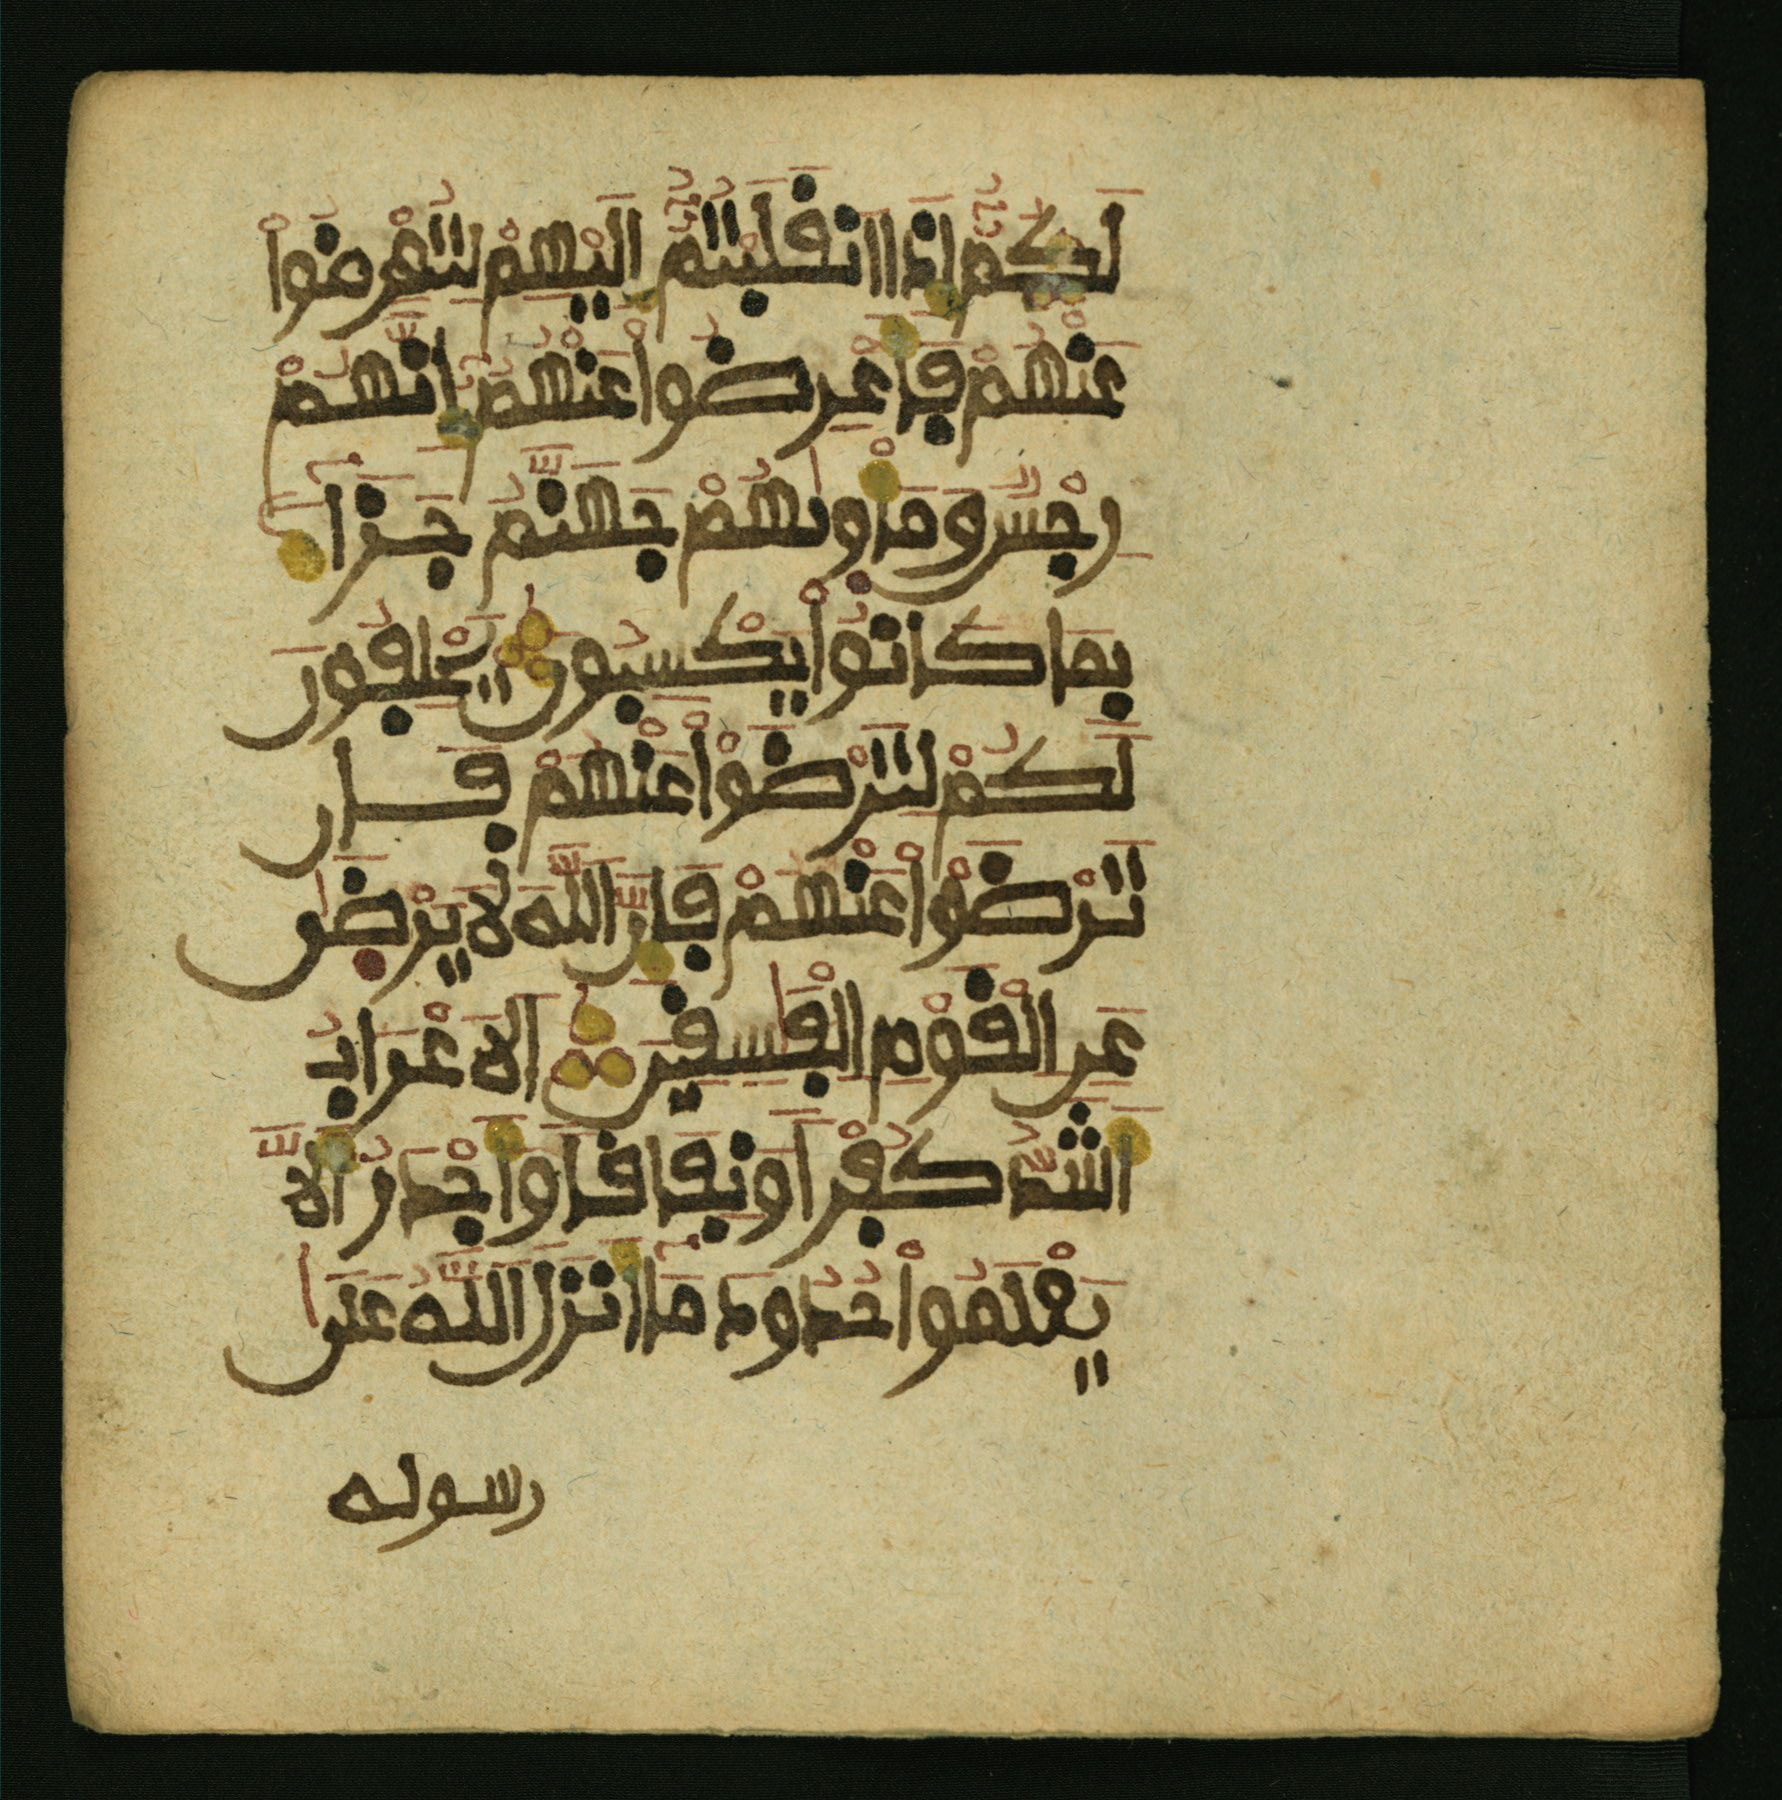 لَكُمْ إِذَا انْقَلَبْتُمْ إِلَيْهِمْ لِتُعْرِضُواْ
عَنْهُمْ فَأَعْرِضُواْ عَنْهُمْ إِنَّهُمْ
رِجْسٌ وَمَأْوٰىهُمْ جَهَنَّمُ جَزَآءً
بِمَا كَانُواْ يَكْسِبُونَ يَحْلِفُونَ
لَكُمْ لِتَرْضَوْاْ عَنْهُمْ فَإِن
تَرْضَوْاْ عَنْهُمْ فَإِنَّ اللَّهَ لَا يَرْضىٰ
عَنِ الْقَوْمِ الْفٰسِقِينَ الَاعْرَابُ
أَشَدُّ كُفْراً وَنِفَاقاً وَأَجْدَرُ أَلَّا
يَعْلَمُواْ حُدُودَ مَآ أَنزَلَ اللَّهُ عَلىٰ
رسوله